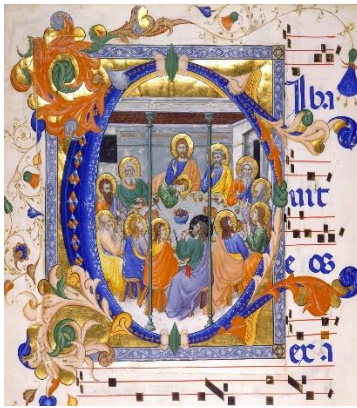 Iba
uit
e os
ex a